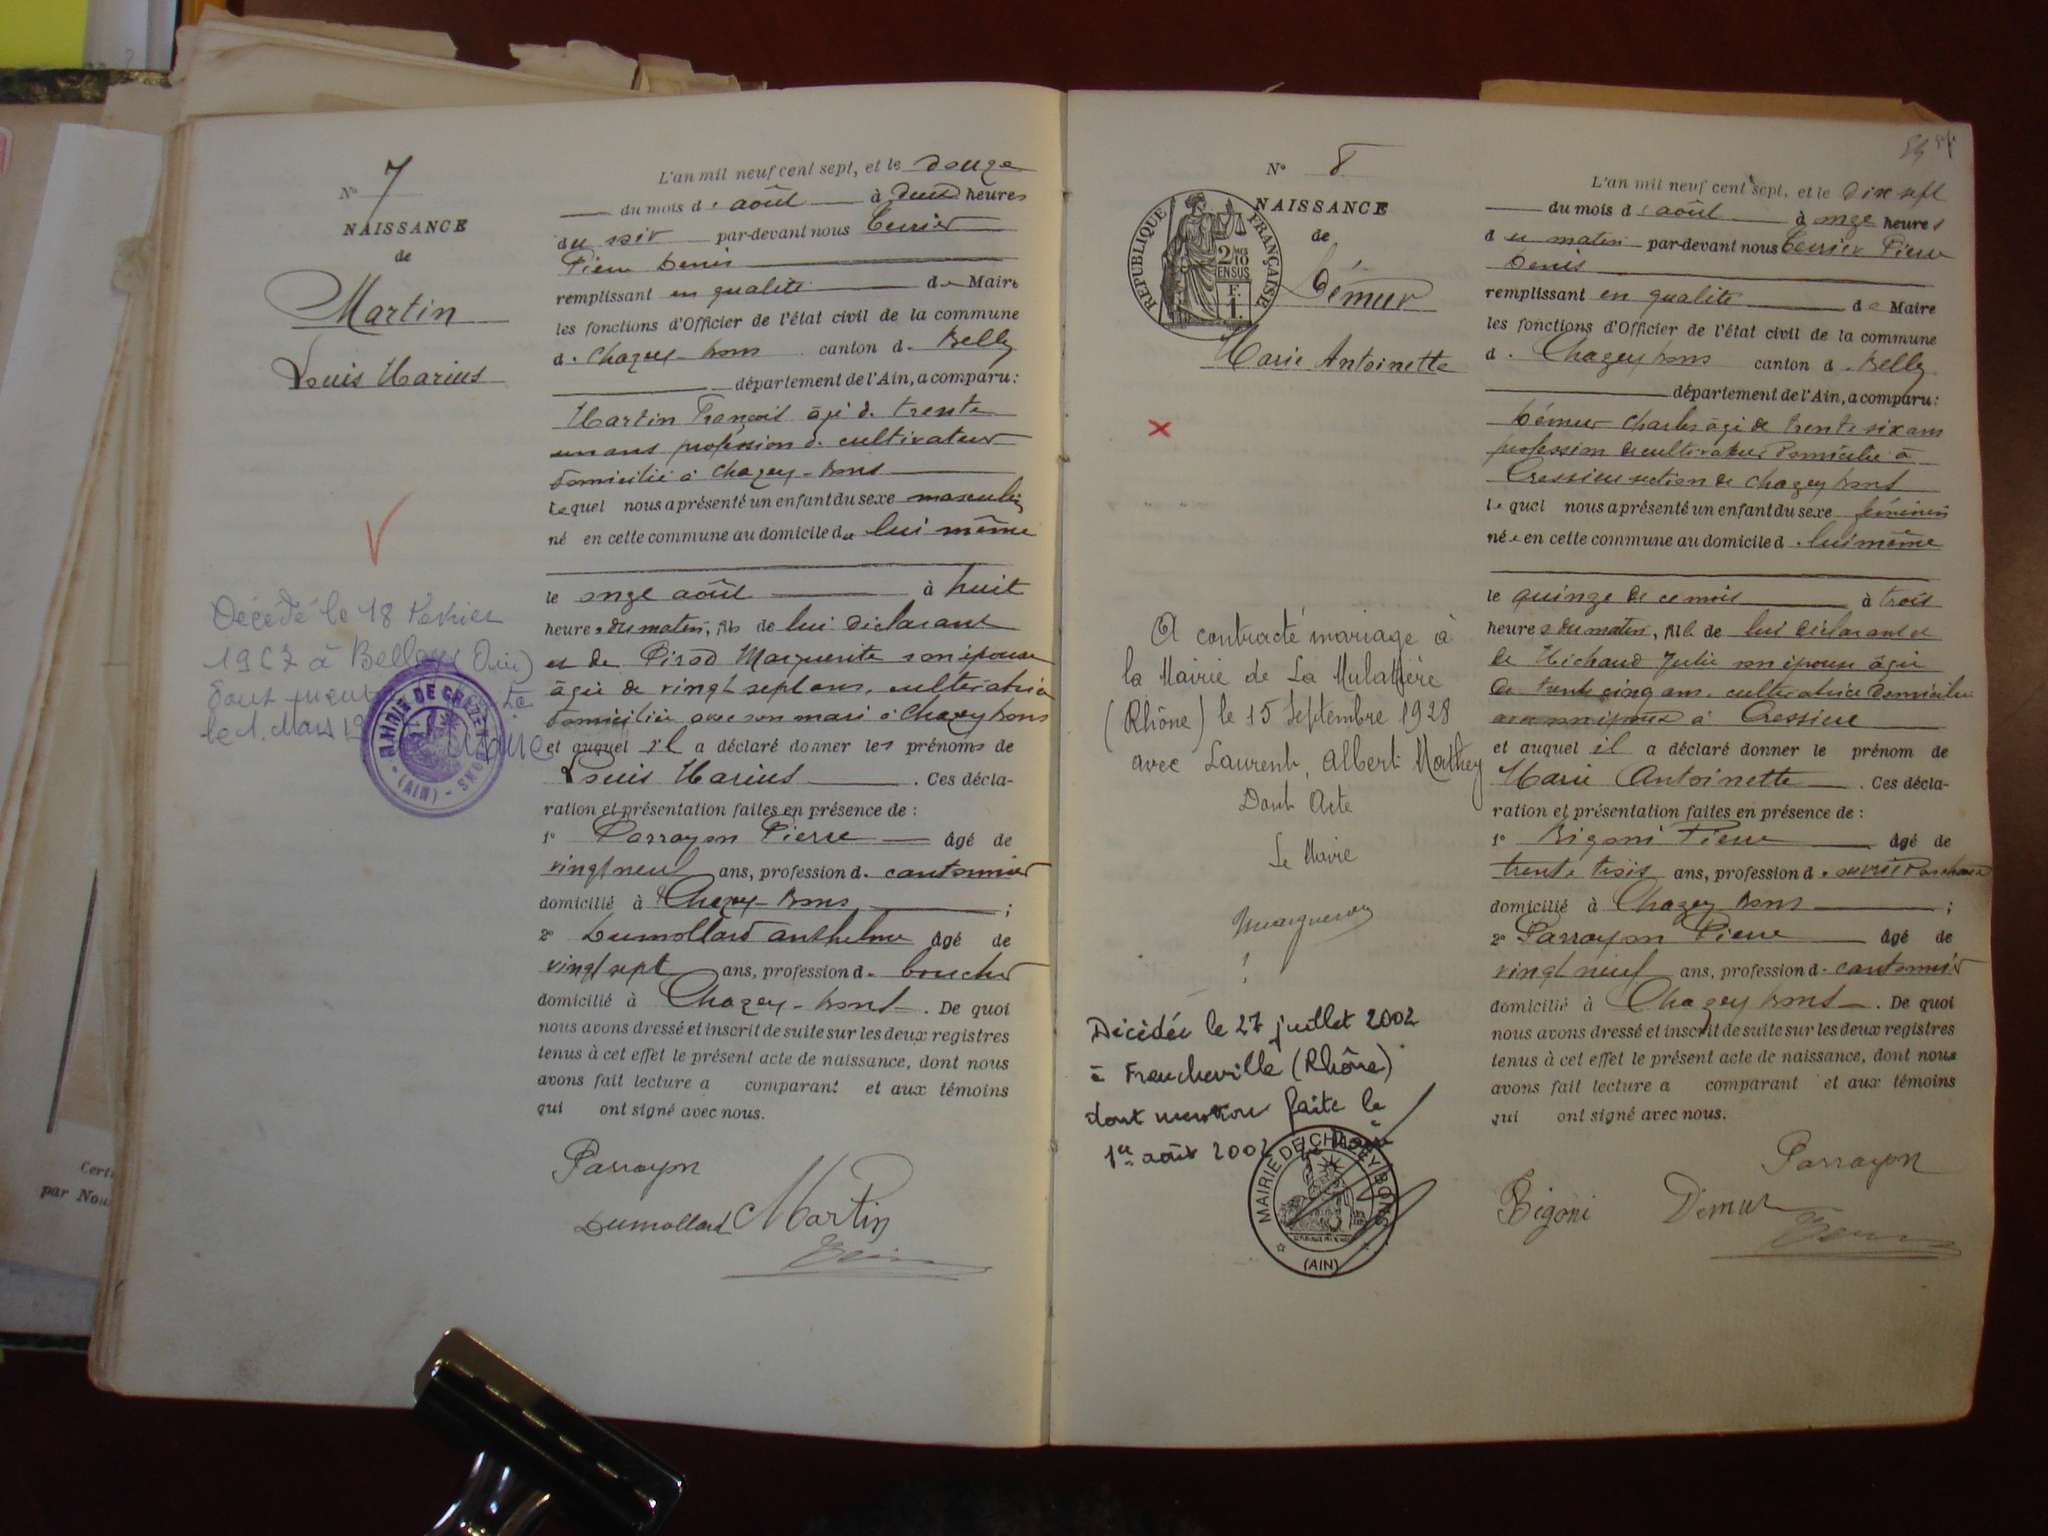 N° 7
NAISSANCE
de
Martin
Louis Marius
Décédé le 18 Février
1967 à Belley (Ain)
dont
le 1. Mars 19
MAIRIE DE CHAZEY-BONS - (AIN) -
L'an mil neuf cent sept, et le douze
du mois d'août à deux heures
du soir par-devant nous Terrier
Pierre Denis
remplissant en qualité de Maire
les fonctions d'Officier de l'état civil de la commune
d. Chazey-Bons canton d. Belley
département de l'Ain, a comparu:
Martin François âgé de trente
un ans profession de cultivateur
domicilié à Chazey-Bons
Lequel nous a présenté un enfant du sexe masculin
né en cette commune au domicile de lui même
le onze août à huit
heures du matin, fils de lui déclarant
et de Pirod Marguerite son épouse
âgée de vingt sept ans, cultivatrice
domiciliée avec son mari à Chazey Bons
et auquel il a déclaré donner les prénoms de
Louis Marius. Ces décla-
ration et présentation faites en présence de :
1° Parrayon Pierre âgé de
vingt neuf ans, profession d. cantonnier
domicilié à Chazey-Bons ;
2° Dumollard Anthelme âgé de
vingt sept ans, profession d. boucher
domicilié à Chazey-Bons. De quoi
nous avons dressé et inscrit de suite sur les deux registres
tenus à cet effet le présent acte de naissance, dont nous
avons fait lecture a comparant et aux témoins
qui ont signé avec nous.
Parrayon
Dumollard Martin
N° 8
NAISSANCE
de
Démur
Marie Antoinette
RÉPUBLIQUE FRANÇAISE
2/10
EN SUS
F.
1.
A contracté mariage à
la Mairie de La Mulatière
(Rhône) le 15 Septembre 1928
avec Laurent, Albert Mathey
Dont Acte
Le Maire
Décédée le 27 juillet 2002
à Francheville (Rhône)
dont mention faite le
1er août 2002 Le Maire
MAIRIE DE CHAZEY BONS
(AIN)
L'an mil neuf cent sept, et le dix sept
du mois d'août à onze heures
du matin par-devant nous Terrier Pierre
Denis
remplissant en qualité de Maire
les fonctions d'Officier de l'état civil de la commune
d. Chazey Bons canton d. Belley
département de l'Ain, a comparu:
Démur Charles âgé de trente six ans
profession de cultivateur domicilié à
Cressieu section de Chazey Bons
Lequel nous a présenté un enfant du sexe féminin
née en cette commune au domicile d. lui même
le quinze de ce mois à trois
heures du matin, fille de lui déclarant et
de Michaud Julie son épouse âgée
de trente cinq ans, cultivatrice domiciliée
à Cressieu
et auquel il a déclaré donner le prénom de
Marie Antoinette. Ces décla-
ration et présentation faites en présence de :
1° Bigoni Pierre âgé de
trente trois ans, profession d.
domicilié à Chazey Bons ;
2° Parrayon Pierre âgé de
vingt neuf ans, profession d. cantonnier
domicilié à Chazey Bons. De quoi
nous avons dressé et inscrit de suite sur les deux registres
tenus à cet effet le présent acte de naissance, dont nous
avons fait lecture a comparant et aux témoins
qui ont signé avec nous.
Parrayon
Bigoni Démur
Certi
par Nou